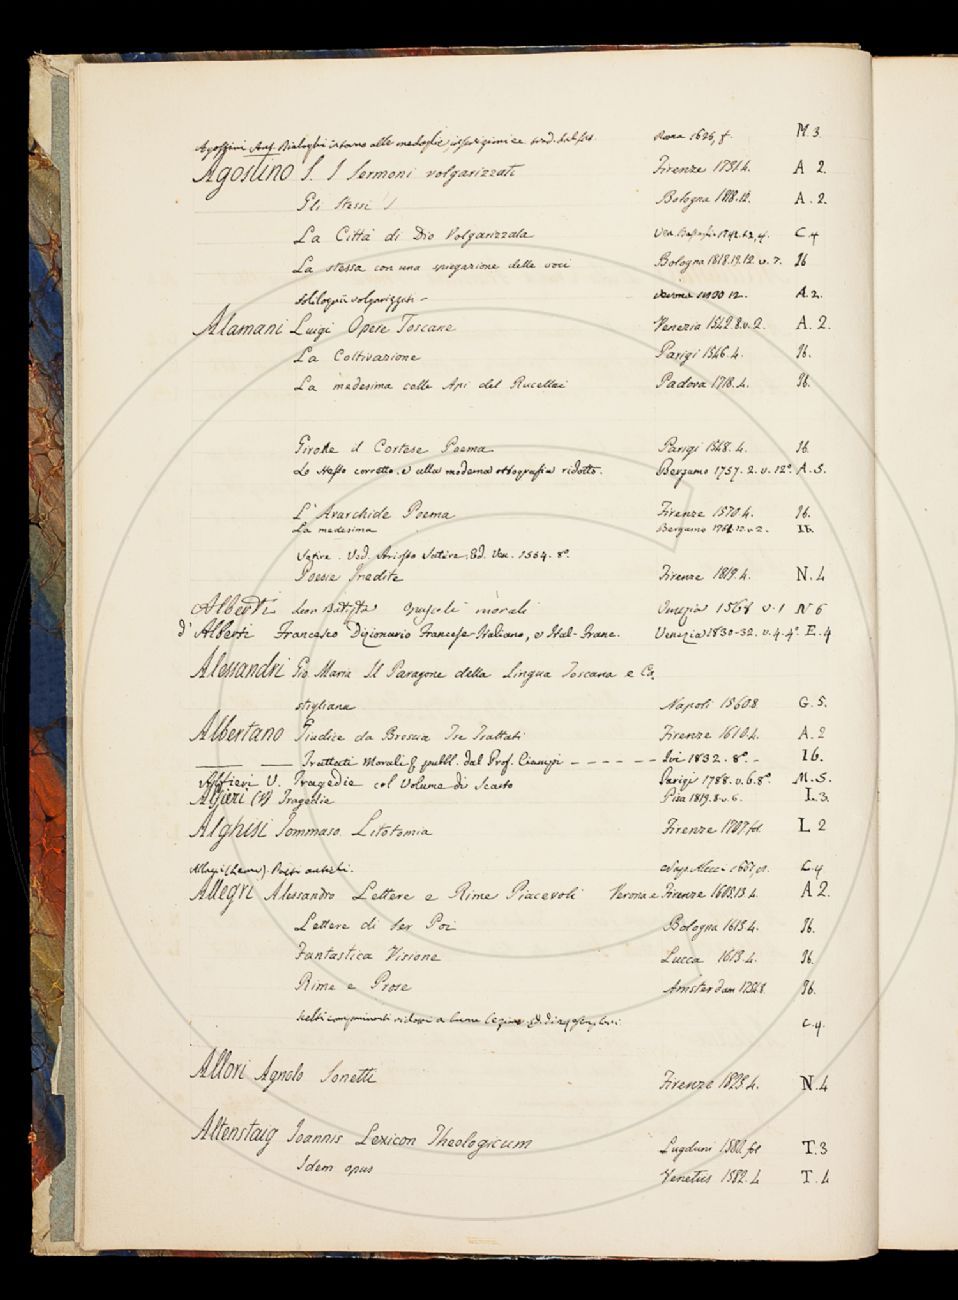 Agostini Ant. Dialoghi intorno alle medaglie, inscrizioni ec trad. dal Roma 1625, f. M. 3.
Agostino S. I Sermoni volgarizzati Firenze 1731.4. A 2.
Gli stessi Bologna 1818.12. A. 2.
La Città di Dio Volgarizzata Ven. 1742. C. 4
La stessa con una spiegazione delle voci Bologna 1818.19.12. v. 7. Ib
Soliloquii volgarizzati - Verona 12. A. 2.
Alamani Luigi Opere Toscane Venezia 1542.8.v.2. A. 2.
La Coltivazione Parigi 1546.4. Ib.
La medesima colle Api del Rucellai Padova 1718.4. Ib.
Girone il Cortese Poema Parigi 1548.4. Ib.
Lo stesso corretto, e alla moderna ortografia ridotto. Bergamo 1757. 2. v. 12° A. 5.
L'Avarchide Poema Firenze 1570 4. Ib.
La medesima Bergamo 1761.12 v 2. Ib.
Satire. Ved. Ariosto Satire. Ed. Ven. 1564. 8°
Poesie Inedite Firenze 1819.4. N. 4
Alberti Leon Battista Opuscoli morali Venezia 1568 v. 1 N 6
d'Alberti Francesco Dizionario Francese-Italiano, e Ital-Franc. Venezia 1830-32. v. 4. 4° E. 4
Alessandri Gio. Maria Il Paragone della Lingua Toscana e Ca,
stigliana Napoli 1560 8 G. 5.
Albertano Giudice da Brescia Tre Trattati Firenze 1610.4. A. 2
— — Trattati Morali pubbl. dal Prof. Ciampi - - - - - - Ivi 1832. 8° - Ib.
Alfieri V. Tragedie col Volume di Scarto Parigi 1788. v. 6. 8° M. 5.
Alfieri (V) Tragedie Pisa 1819.8 v. 6. L. 3.
Alghisi Tommaso Litotomia Firenze 1707 fol L 2
Allacci (Leone) Poeti antichi. Nap. 1661 C. 4
Allegri Alessandro Lettere e Rime Piacevoli Verona e Firenze 1605.13 4. A 2.
Lettere di Ser Poi Bologna 1613.4. Ib.
Fantastica Visione Lucca 1613.4. Ib.
Rime e Prose Amsterdam 1754.8. Ib.
C. 4.
Allori Agnolo Sonetti Firenze 1823 4. N. 4
Altenstaig Joannis Lexicon Theologicum Lugduni 1580. fol T. 3
Idem opus Venetiis 1582. 4 T. 4